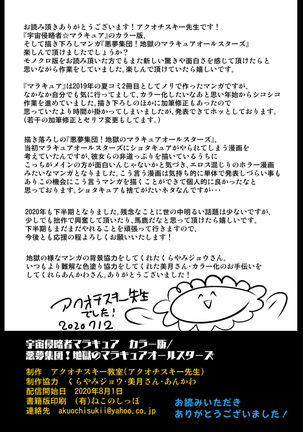 お読み頂きありがとうございます！アクオチスキー先生です！
『宇宙侵略者☆マラキュア』のカラー版、
そして描き下ろしマンガ『悪夢集団！地獄のマラキュアオールスターズ』
楽しんで頂けましたでしょうか？
モノクロ版をお読み頂いた方でもまた新しい驚きや面白さを感じて頂けたらと
思いながら作業をしていました。楽しんで頂けていたら嬉しいです。
『マラキュア』は2019年の夏コミ2冊目としてノリで作ったマンガで、
なかなか自分でも気に行ってまして、カラー化したいなあと思い年始からシコシコ
作業を進めていました。描き下ろしのほかに加筆修正もあったので
思っていたより時間が掛かってしまいましたが、発表できてホッとしております。
（若干の加筆修正とセリフ変更もしてます。）
描き落ろしの『悪夢集団！地獄のマラキュアオールスターズ』、
当初マラキュアオールスターズにショタキュアがやられてしまう漫画を
考えていたんですが、彼女らの非道っぷりを描いているうちに
こっちがメインの方が面白いんじゃないかと気づき、エロス混じりのホラー漫画
みたいなマンガとなりました。こう言う漫画は気持ち的に単体で発表しづらい事も
ありこの機会にこう言うマンガを描くことができて個人的に良かったなと
思っております。ショタキュアも捨てがたいネタなんですが…
2020年も下半期となりました。残念なことに世の中明るい話題は少ないですが、
少しでも拙作で興奮して頂いたり、馬鹿だなと思って頂けたら嬉しいです。
下半期もまだまだやれることを頑張って行きますので、
今後とも応援の程よろしくお願いいたします！
地獄の様なマンガの背景協力をしてくれたくらやみジョウさん。
いつもより難解な色塗り協力をしてくれた美月さん・カラー化のお手伝いを
してくれらあんかわさん、ありがとうございました！
アクオチスキー先生
でした！
2020 7/12
宇宙侵略者マラキュア カラー版/
悪夢集団！地獄のマラキュアオールスターズ
制作 アクオチスキー教室（アクオチスキー先生）
制作協力 くらやみジョウ・美月さん・あんかわ
配信開始日 2020年8月1日
書籍版印刷 （有）ねこのしっぽ
連絡先 akuochisukii@yahoo.co.jp
お読みいただき
ありがとうございました！